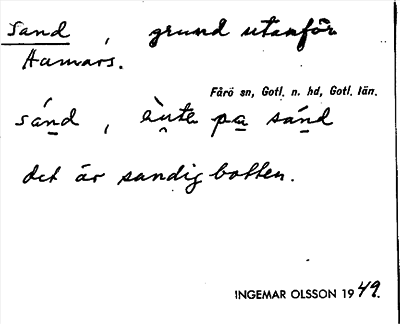 Sand , grund utanför
Hamars.
Fårö sn, Gotl. n. hd, Gotl. län.
sánd , ùte pa sánd
det är sandig botten.
INGEMAR OLSSON 1949.